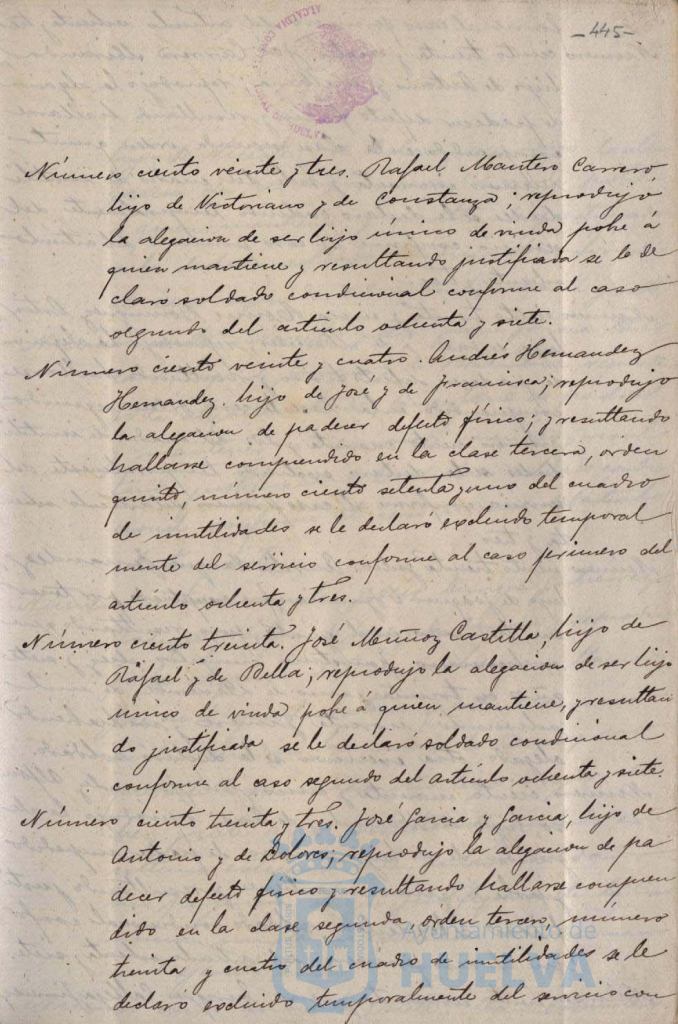 -445-
ALCALDIA CONSTITUCIONAL DE HUELVA
Número ciento veinte y tres. Rafael Mantero Carrero
hijo de Victoriano y de Constanza; reprodujo
la alegacion de ser hijo único de viuda pobre á
quien mantiene y resultando justificada se le de
claró soldado condicional conforme al caso
segundo del artículo ochenta y siete.
Número ciento veinte y cuatro. Andrés Hernandez
Hernandez hijo de José y de Francisca; reprodujo
la alegacion de padecer defecto físico; y resultando
hallarse comprendido en la clase tercera, órden
quinto, número ciento setenta y uno del cuadro
de inutilidades se le declaró excluido temporal
mente del servicio conforme al caso primero del
artículo ochenta y tres.
Número ciento treinta. José Muñoz Castilla, hijo de
Rafael y de Bella; reprodujo la alegacion de ser hijo
único de viuda pobre á quien mantiene, y resultan
do justificada se le declaró soldado condicional
conforme al caso segundo del artículo ochenta y siete.
Número ciento treinta y tres. José Garcia y Garcia, hijo de
Antonio y de Dolores; reprodujo la alegacion de pa
decer defecto físico y resultando hallarse compren
dido en la clase segunda, órden tercero, número
treinta y cuatro del cuadro de inutilidades se le
declaró excluido temporalmente del servicio con
Ayuntamiento de
HUELVA